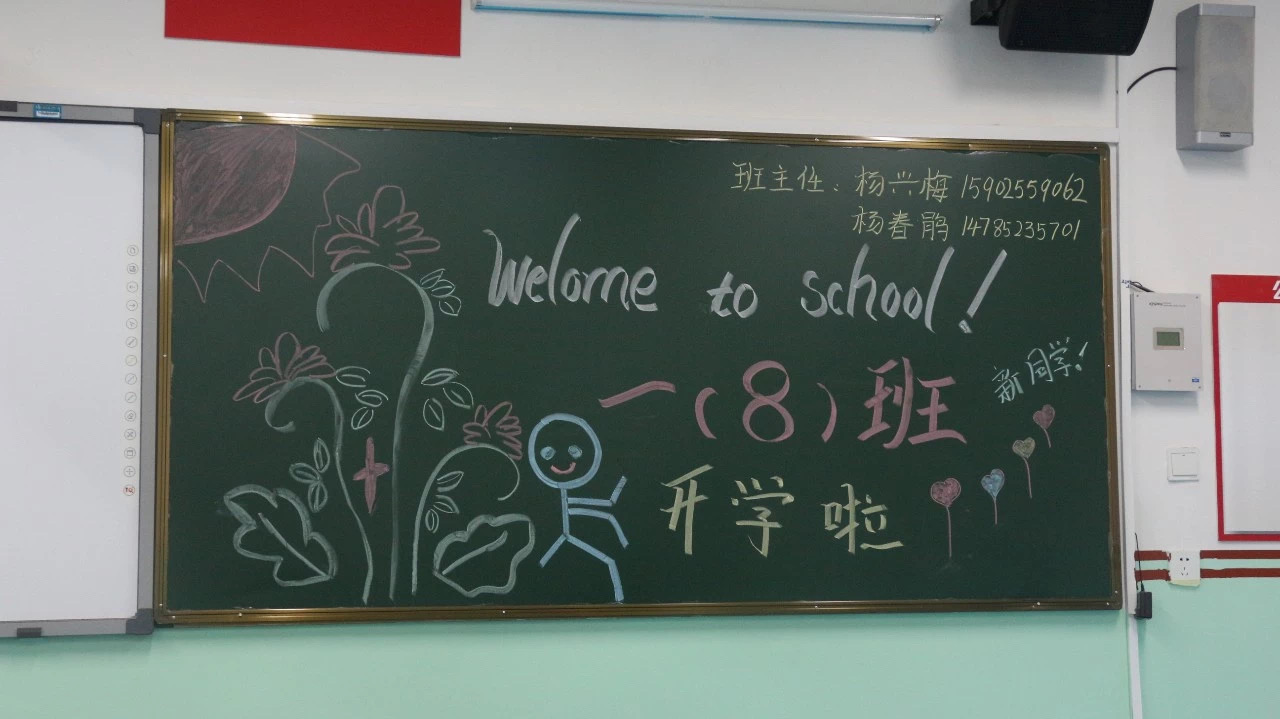 班主任：杨兴梅 15902559062
杨春鹃 14785235701
Welome to school!
新同学!
一(8)班
开学啦